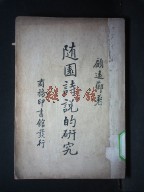 顧遠薌著
随園詩說的研究
商務印書館發行